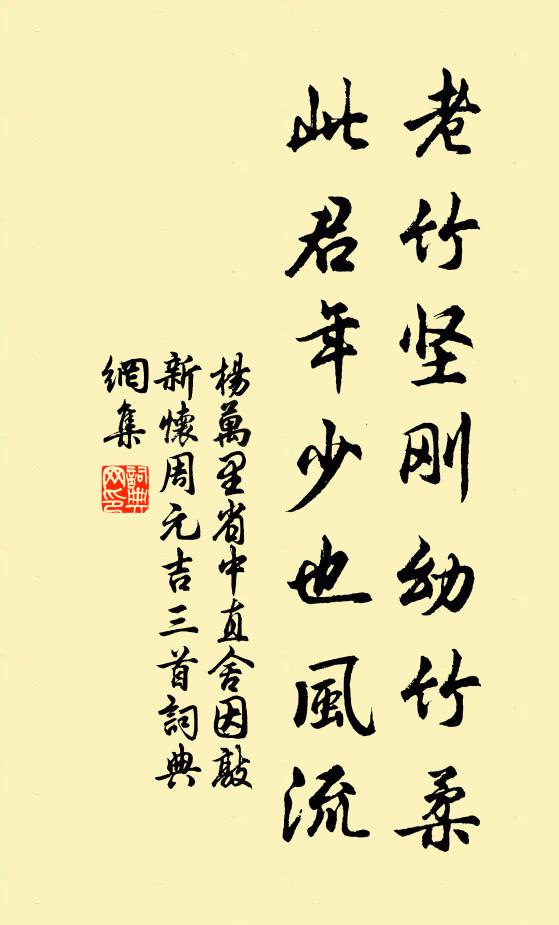 老竹坚刚幼竹柔
此君年少也風流
楊萬里省中直舍因敲
新懷周元吉三首詞典
網集
詞典
网印